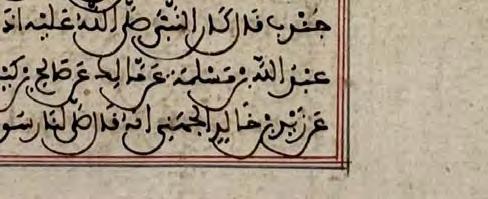 جندب قال كان النبي صلى الله عليه اذا
عبد الله بن مسلمة عن مالك عن صالح بن كيـ
عن زيد بن خالد الجهني انه قال صلى لنا رسو